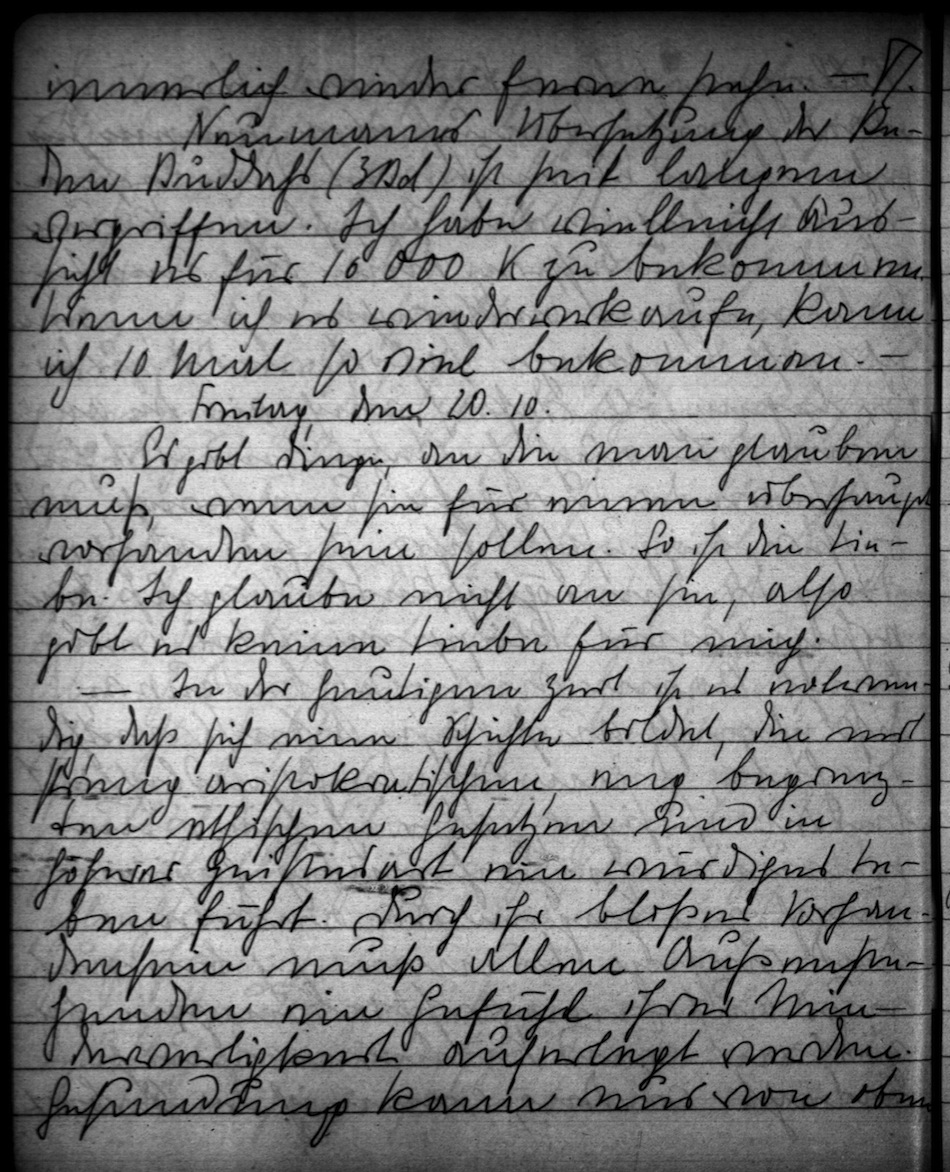 innerlich wieder ferne sehe. —
Neumanns Übersetzung der Re-
den Buddhas (3 Bd) ist seit langem
vergriffen. Ich habe vielleicht Aus-
sicht es für 10 000 K zu bekommen.
Wenn ich es wiederverkaufe, kann
ich 10 Mal so viel bekommen. —
Freitag, den 20. 10.
Es gibt Dinge, an die man glauben
muß, wenn sie für einen überhaupt
vorhanden sein sollen. So ist die Lie-
be. Ich glaube nicht an sie, also
gibt es keine Liebe für mich.
— In der heutigen Zeit ist es notwen-
dig, daß sich eine Schichte bildet, die mit
streng aristokratischen, eng begrenz-
ten ethischen Gesetzen und in
höherer Geistesart ein würdiges Le-
ben führt. Durch ihr bloßes Vorhan-
densein muß allen Außenste-
henden ein Gefühl ihrer Min-
derwertigkeit auferlegt werden.
Gesundung kann nur von oben